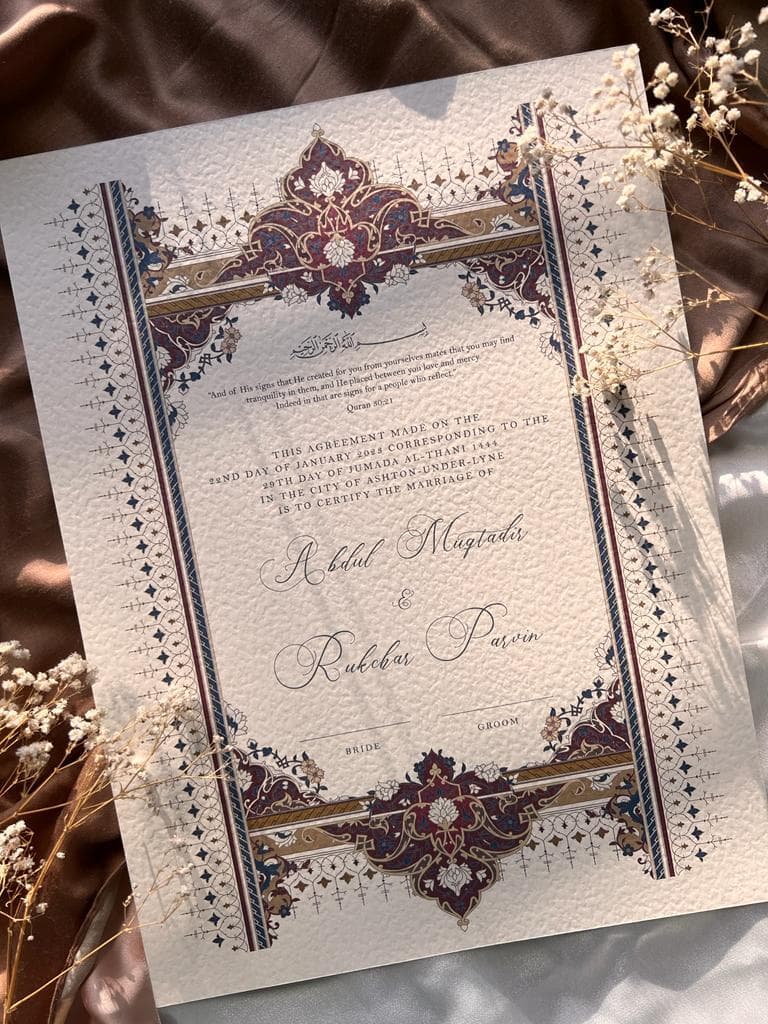 بسم الله الرحمن الرحيم
"And of His signs that He created for you from yourselves mates that you may find
tranquility in them, and He placed between you love and mercy.
Indeed in that are signs for a people who reflect."
Quran 30:21
THIS AGREEMENT MADE ON THE
22ND DAY OF JANUARY 2023 CORRESPONDING TO THE
29TH DAY OF JUMADA AL-THANI 1444
IN THE CITY OF ASHTON-UNDER-LYNE
IS TO CERTIFY THE MARRIAGE OF
Abdul Muqtadir
&
Rukchar Parvin
BRIDE GROOM